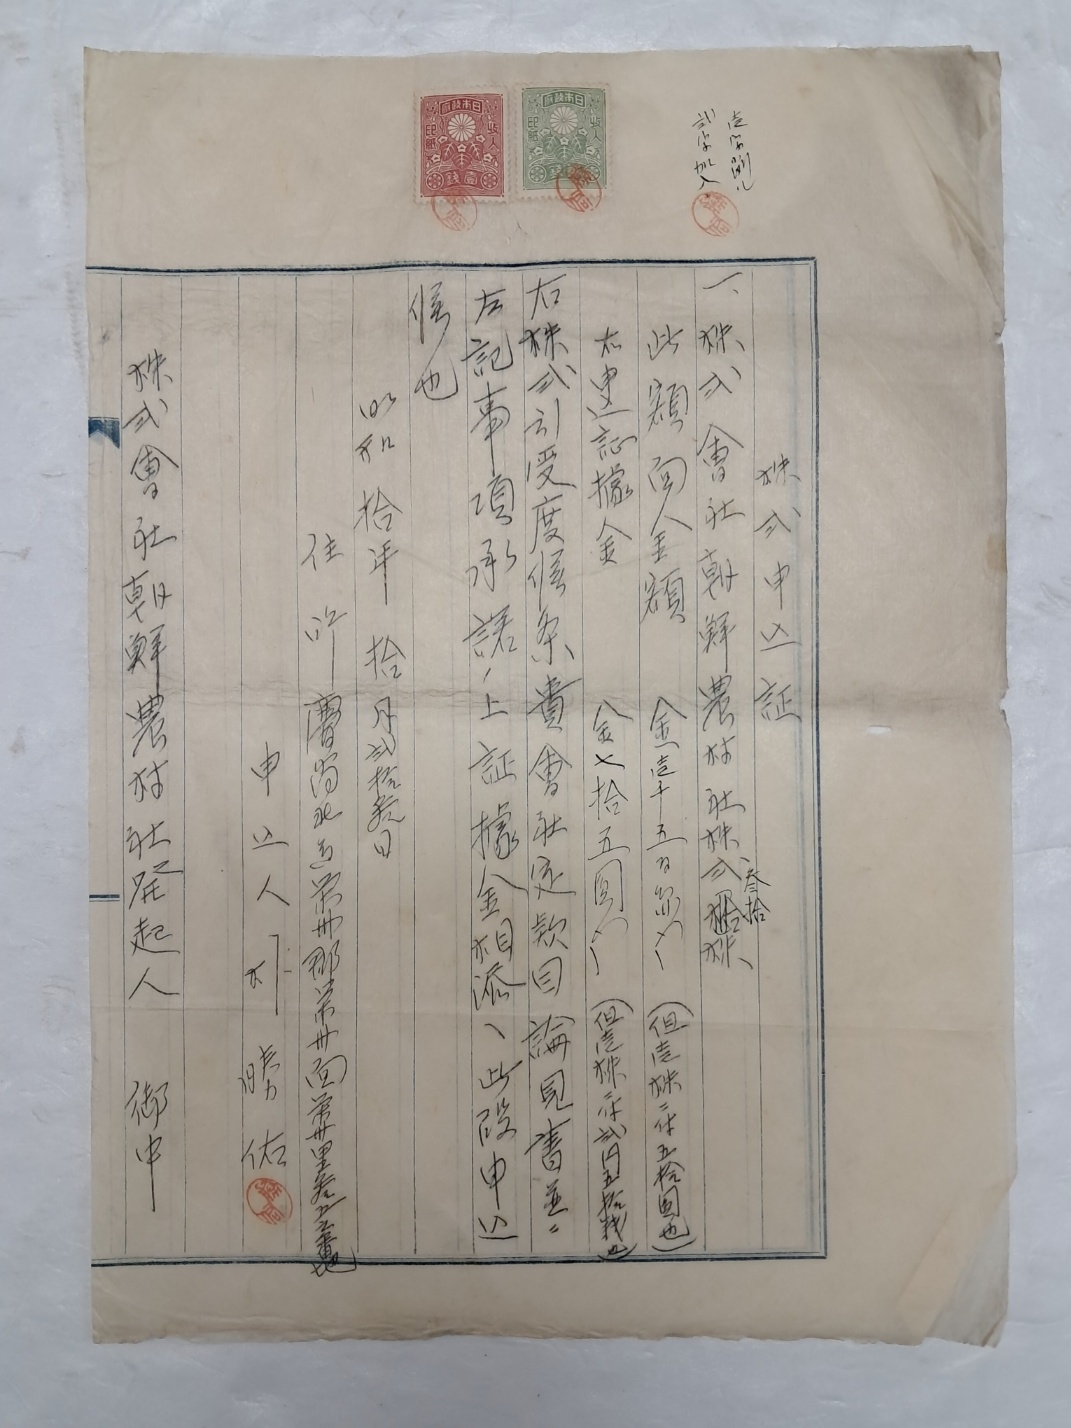 壱字削り
弐字加入
日本政府
収入
印紙
日本政府
収入
印紙
壹錢
株式申込証
一、株式會社朝鮮農林社株式参拾株、
此額面金額 金壱千五百円也 (但壱株ニ付五拾圓也)
右申込証據金 金七拾五圓也 (但壱株ニ付弐円五拾錢也)
右株式引受度候条貴會社定款目論見書並ニ
左記事項承諾ノ上証據金相添ヘ此段申込
候也
昭和拾年拾月弐拾参日
住所慶尚北道栄州郡栄州面栄州里
申込人 朴勝佑
株式會社朝鮮農林社発起人 御中